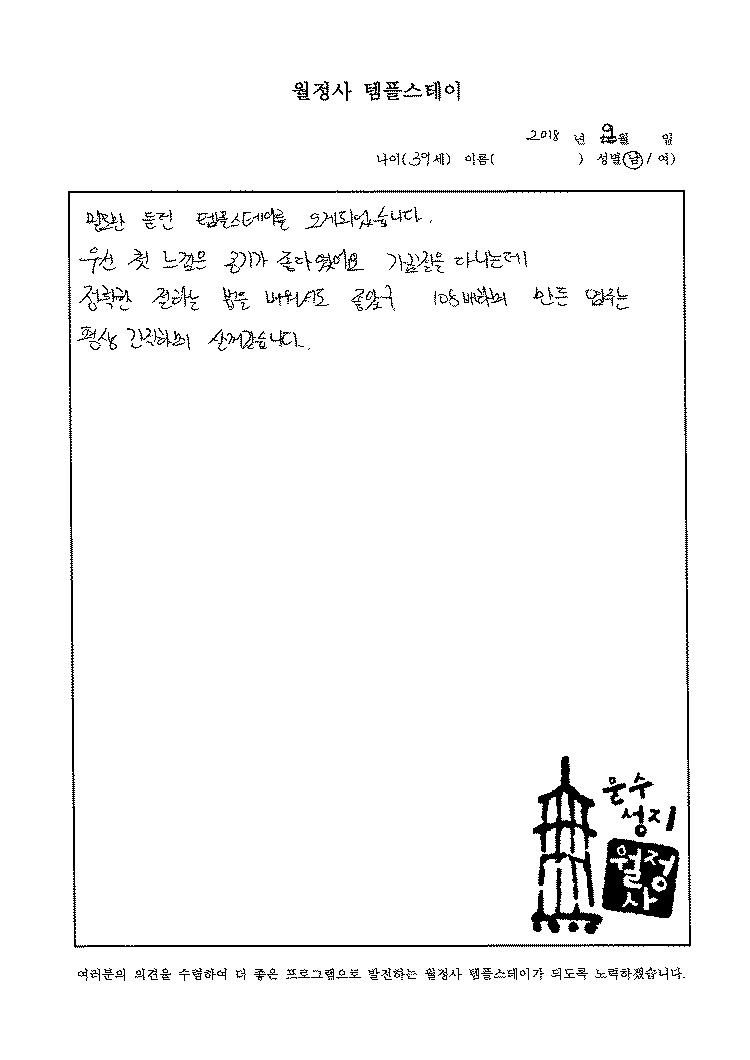 월정사 템플스테이
2018 년 9월 일
나이(39세) 이름( ) 성별(남/여)
말로만 듣던 템플스테이를 오게되었습니다.
우선 첫 느낌은 공기가 좋다였어요 기침을 다니는데
정확한 절하는 법을 배워서도 좋았구 108배하며 만든 염주는
평생 간직하며 살꺼같습니다.
문수
성지
월정
사
여러분의 의견을 수렴하여 더 좋은 프로그램으로 발전하는 월정사 템플스테이가 되도록 노력하겠습니다.